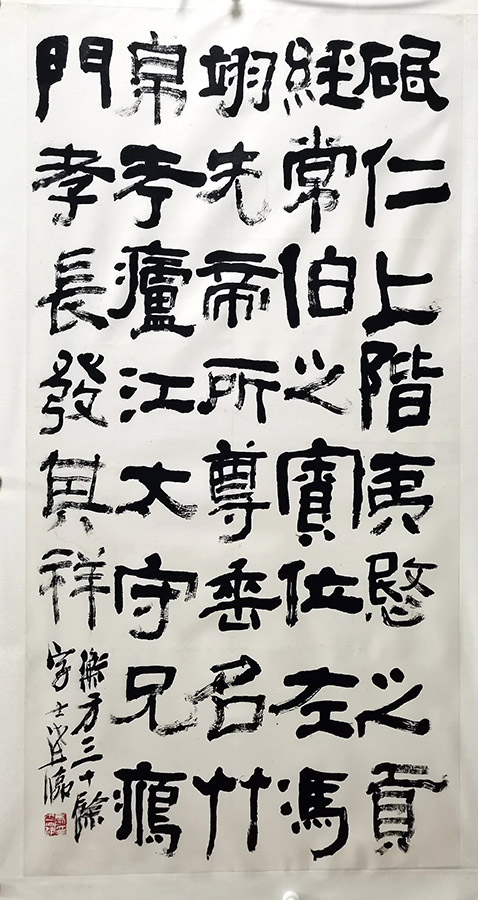 砥仁上階夷愍之貢
經常伯之賓位左馮
翊先帝所尊垂名竹
帛考廬江大守兄鴈
門孝長發其祥
衡方三十餘
字士臨